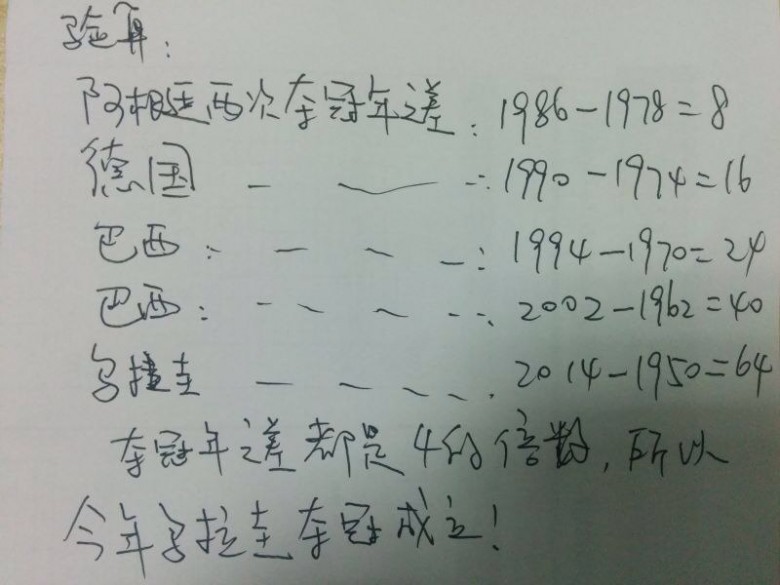 验算：
阿根廷两次夺冠年之差：1986-1978=8
德国 — — -：1990-1974=16
巴西：- - -：1994-1970=24
巴西：- - - -：2002-1962=40
乌拉圭 — - - -．2014-1950=64
夺冠年之差都是4的倍数，所以
今年乌拉圭夺冠成立！